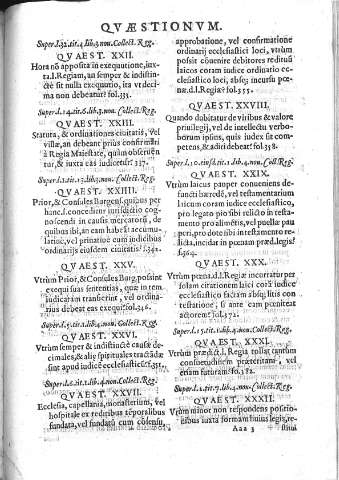 QVÆSTIONVM.
Super.l.32.tit.4.lib.3.nou.Collect.Reg.
QVAEST. XXII.
Hora nō apposita in exequutione, iux-
ta.l.Regiam, an semper & indistin-
ctè sit nulla exequutio, ita vt deci-
ma non debeatur? fol.335.
Super.l.14.tit.6.lib.3.nou.Collect.Reg.
QVAEST. XXIII.
Statuta, & ordinationes ciuitatis, vel
villæ, an debeant prius confirmari
à Regia Maiestate, quàm obseruen
tur, & iuxta eas iudicetur? 337.
Super.l.1.tit.13.lib.3.nou.Collect.Reg.
QVAEST. XXIIII.
Prior, & Consules Burgens. quibus per
hanc.l.concessum iurisdictio cog-
noscendi in causis mercatorū, de
quibus ibi, an eam habeāt accumu-
latiuè, vel priuatiuè iudicibus
ordinarijs eiusdem ciuitatis? 342.
QVAEST. XXV.
Vtrùm Prior, & Consules Burg. possint
exequi suas sententias, quæ in rem
iudicatam transierint, vel ordina-
rius debeat eas exequi? fol.346.
Super.l.5.tit.1.lib.4.nou.Collect.Reg.
QVAEST. XXVI.
Vtrùm semper & indistinctè causæ de-
cimales, & aliæ spirituales tractādæ
sint apud iudicē ecclesiasticū? f.351.
Super.l.2.tit.1.lib.4.nou.Collect.Reg.
QVAEST. XXVII.
Ecclesia, capellania, monasterium, vel
hospitale ex reditibus tēporalibus
fundata, vel fundatū cum cōsensu,
approbatione, vel confirmatione
ordinarij ecclesiastici loci, vtrùm
possit cōuenire debitores redituū
laicos coram iudice ordinario ec-
clesiastico laicos, absq; incursu pœ-
næ.d.l.Regiæ? fol.355.
QVAEST. XXVIII.
Quando dubitatur de viribus & valore
priuilegij, vel de intellectu verbo-
rum ipsius, quis iudex sit com-
petens, & adiri debeat? fol.358.
Super.l.10.eiusd.tit.1.lib.4.nou.Coll.Reg.
QVAEST. XXIX.
Vtrùm laicus pauper conueniens de-
functi hærodē, vel testamentarium
laicum coram iudice ecclesiastico,
pro legato pio sibi relicto in testa-
mento pro alimētis, vel puella pau
peri, pro dote sibi in testamento re-
licta, incidat in pœnam præd.legis?
f.364.
QVAEST. XXX.
Vtrùm pœna.d.l.Regiæ incurratur per
solam citationem laici corā iudice
ecclesiastico factam absq; litis con-
testatione, & ante eam pœniteat
actorem? fol.372.
Super.l.15.tit.1.lib.4.nou.Collect.Reg.
QVAEST. XXXI.
Vtrùm prædict.l.Regia tollat tantùm
consuetudinem præteritam, vel
etiam futuram? fo.382.
Super.l.1.tit.7.lib.4.nou.Collect.Reg.
QVAEST. XXXII.
Vtrùm minor non respondens positio-
nibus iuxta formam huius legis, re-
Aaa 3
stitui